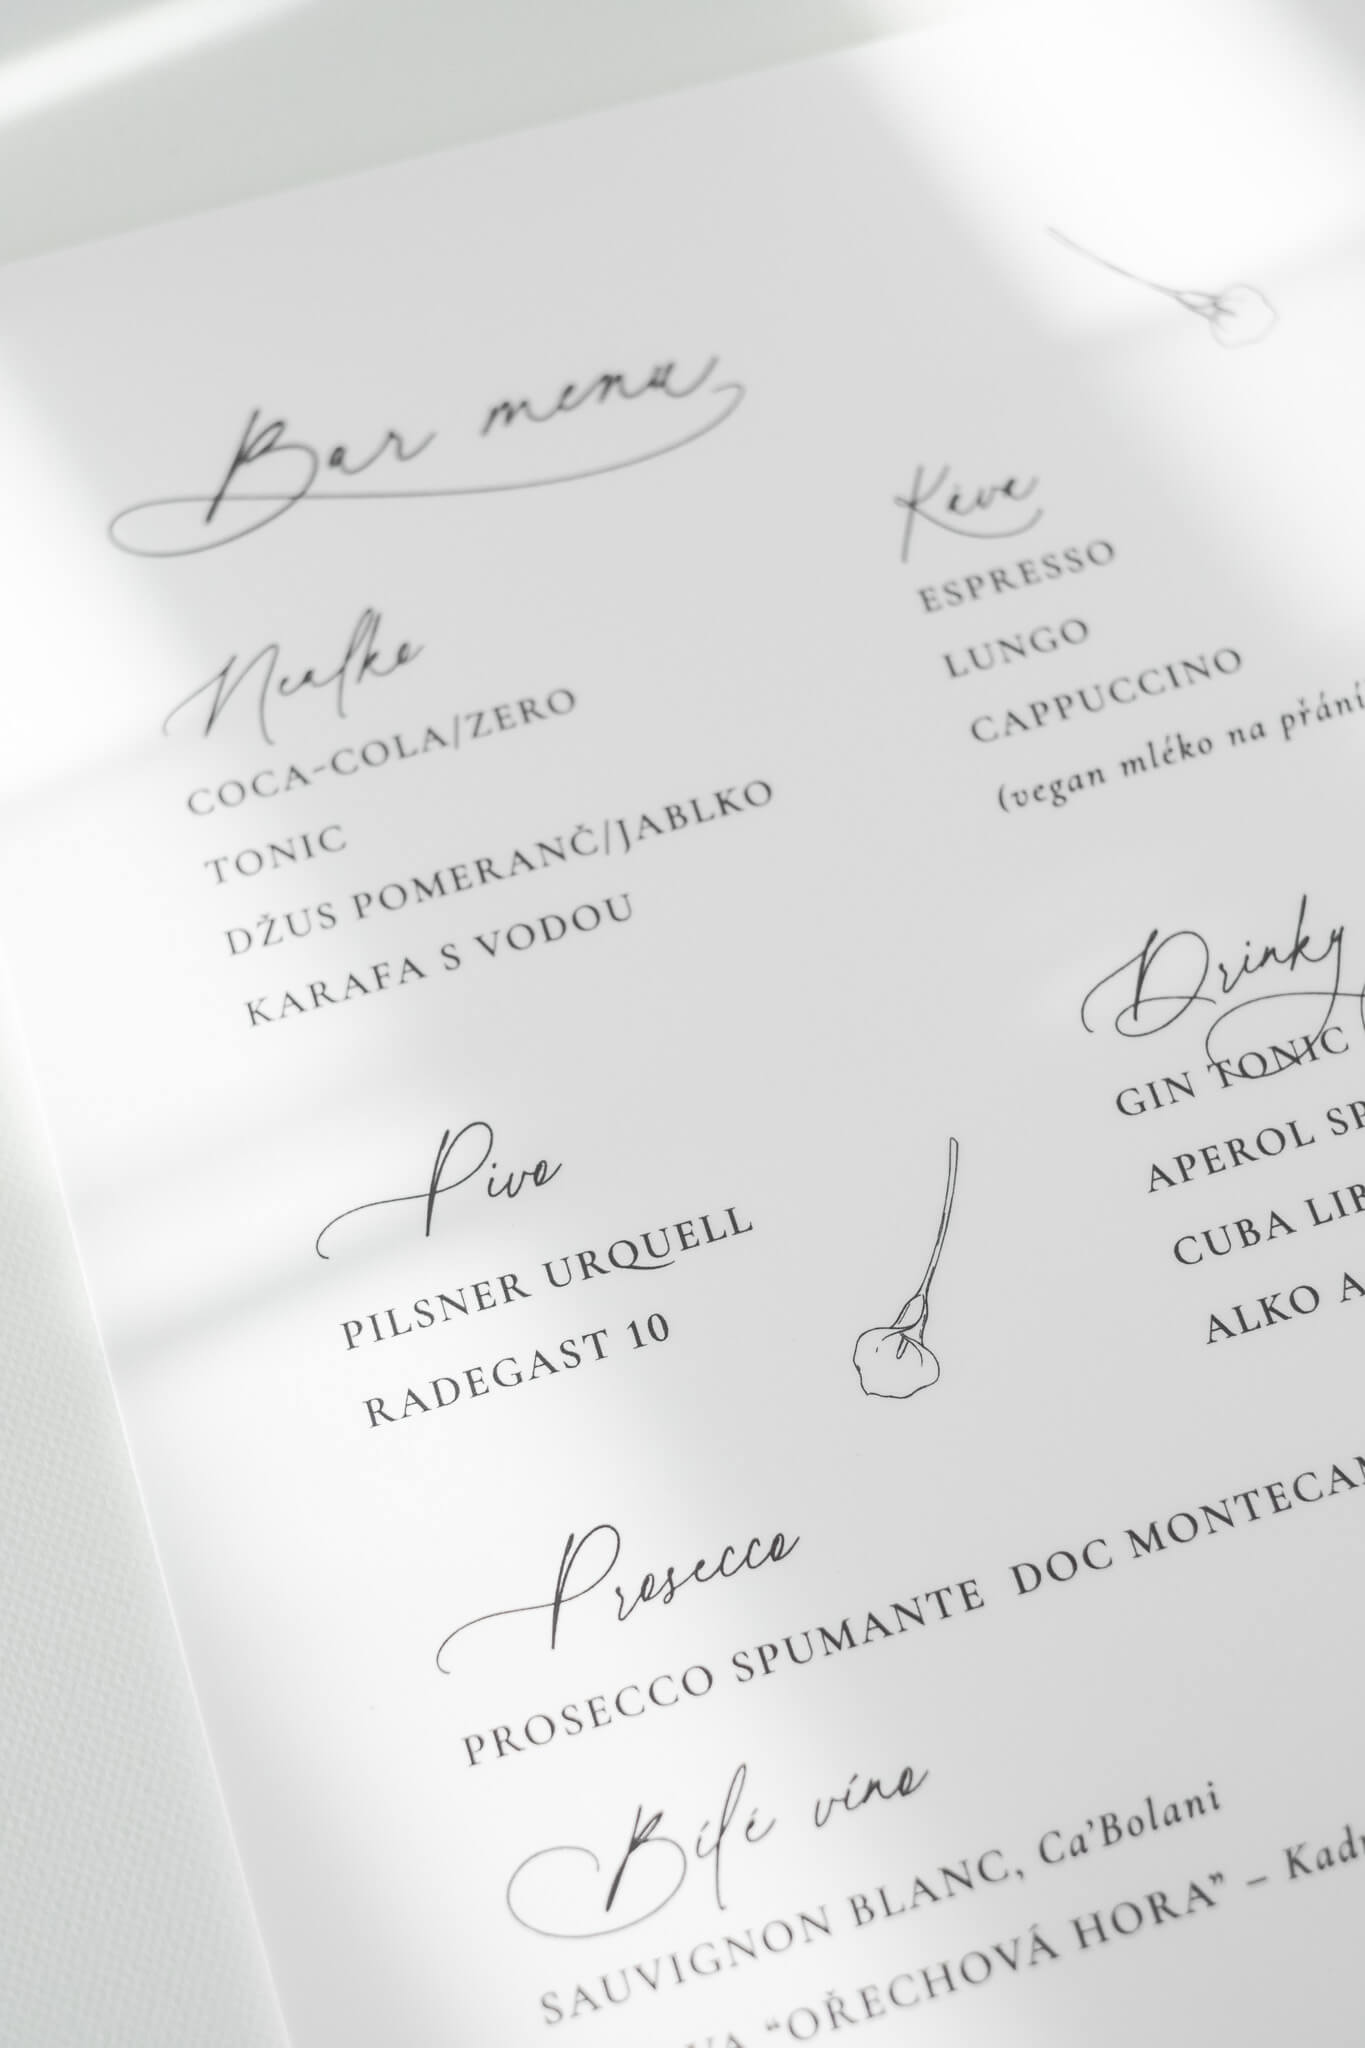 Bar menu
Nealko
COCA-COLA/ZERO
TONIC
DŽUS POMERANČ/JABLKO
KARAFA S VODOU
Káva
ESPRESSO
LUNGO
CAPPUCCINO
(vegan mléko na přání)
Pivo
PILSNER URQUELL
RADEGAST 10
Drinky
GIN TONIC
APEROL
CUBA
ALKO
Prosecco
PROSECCO SPUMANTE DOC
Bílé víno
SAUVIGNON BLANC, Ca'Bolani
“OŘECHOVÁ HORA” –